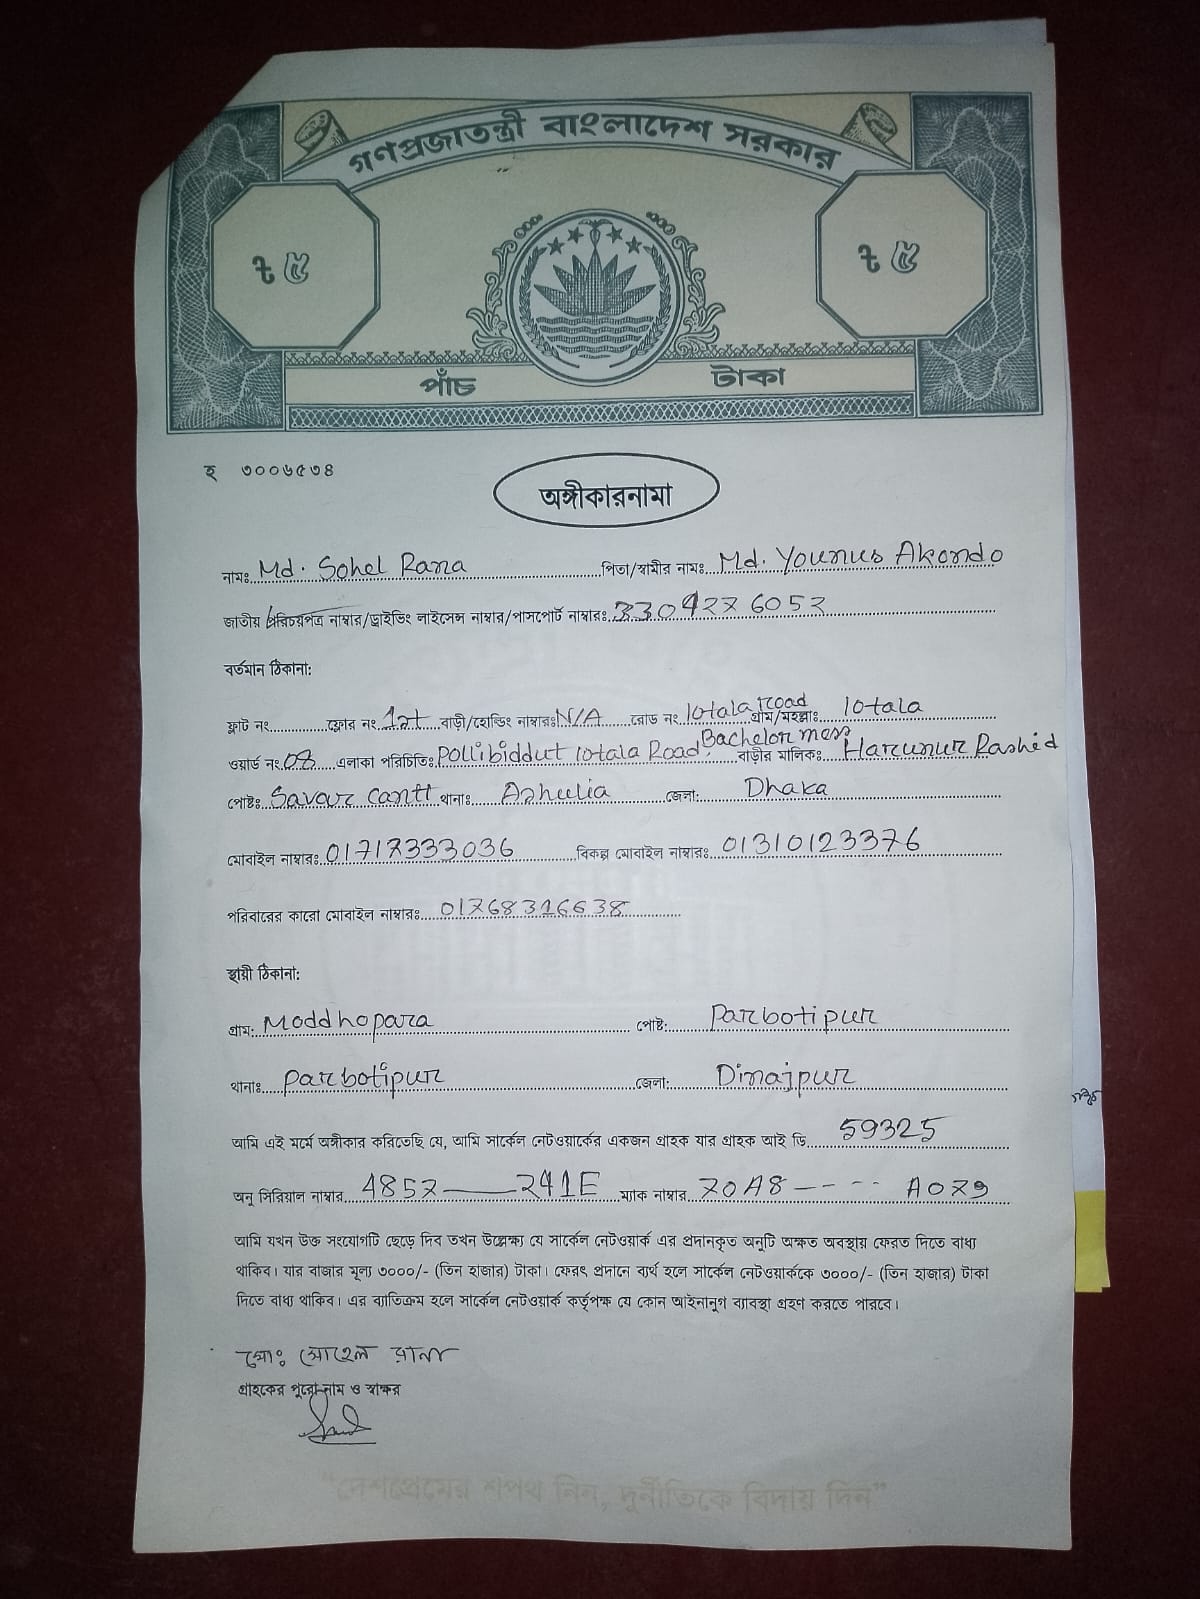 গণপ্রজাতন্ত্রী বাংলাদেশ সরকার
৳ ৫ ৳ ৫
পাঁচ টাকা
হ ৩০০৬৫৩৪
অঙ্গীকারনামা
নামঃ Md. Sohel Rana পিতা/স্বামীর নামঃ Md. Younus Akondo
জাতীয় পরিচয়পত্র নাম্বার/ড্রাইভিং লাইসেন্স নাম্বার/পাসপোর্ট নাম্বারঃ 3304276052
বর্তমান ঠিকানা:
ফ্লাট নং ফ্লোর নং 1st বাড়ী/হোল্ডিং নাম্বারঃ N/A রোড নং 10tala road গ্রাম/মহল্লাঃ 10tala
ওয়ার্ড নং 08 এলাকা পরিচিতিঃ Pollibiddut 10tala Road, Bachelor mess বাড়ীর মালিকঃ Harunur Rashid
পোষ্টঃ Savar cantt থানাঃ Ashulia জেলা: Dhaka
মোবাইল নাম্বারঃ 01717333036 বিকল্প মোবাইল নাম্বারঃ 01310123376
পরিবারের কারো মোবাইল নাম্বারঃ 01768316638
স্থায়ী ঠিকানা:
গ্রাম: Moddhopara পোষ্ট: Parbotipur
থানাঃ Parbotipur জেলা: Dinajpur
আমি এই মর্মে অঙ্গীকার করিতেছি যে, আমি সার্কেল নেটওয়ার্কের একজন গ্রাহক যার গ্রাহক আই ডি 59325
অনু সিরিয়াল নাম্বার 4857——241E ম্যাক নাম্বার 70A8 ---- A079
আমি যখন উক্ত সংযোগটি ছেড়ে দিব তখন উল্লেখ্য যে সার্কেল নেটওয়ার্ক এর প্রদানকৃত অনুটি অক্ষত অবস্থায় ফেরত দিতে বাধ্য
থাকিব। যার বাজার মূল্য ৩০০০/- (তিন হাজার) টাকা। ফেরৎ প্রদানে ব্যর্থ হলে সার্কেল নেটওয়ার্ককে ৩০০০/- (তিন হাজার) টাকা
দিতে বাধ্য থাকিব। এর ব্যতিক্রম হলে সার্কেল নেটওয়ার্ক কর্তৃপক্ষ যে কোন আইনানুগ ব্যবস্থা গ্রহণ করতে পারবে।
মোঃ সোহেল রানা
গ্রাহকের পুরো নাম ও স্বাক্ষর
"দেশপ্রেমের শপথ নিন, দুর্নীতিকে বিদায় দিন"